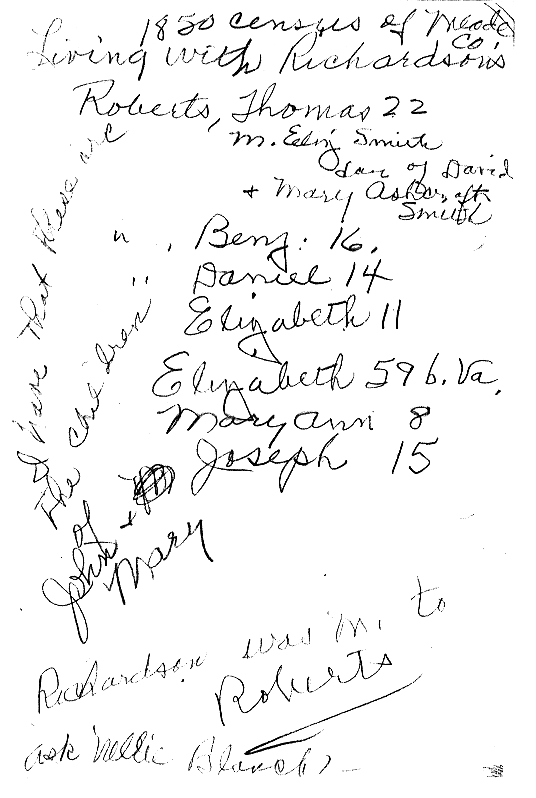 1850 census of Meade Co.
Living with Richardsons
Roberts, Thomas 22
M. Eliz Smith
dau of David
+ Mary Ashcraft
Smith
" , Benj. 16.
" Daniel 14
Elizabeth 11
Elizabeth 59 b. Va.
Mary Ann 8
Joseph 15
I have that these are
the children
of
John +
Mary
Richardson was M. to
Roberts
ask Nellie